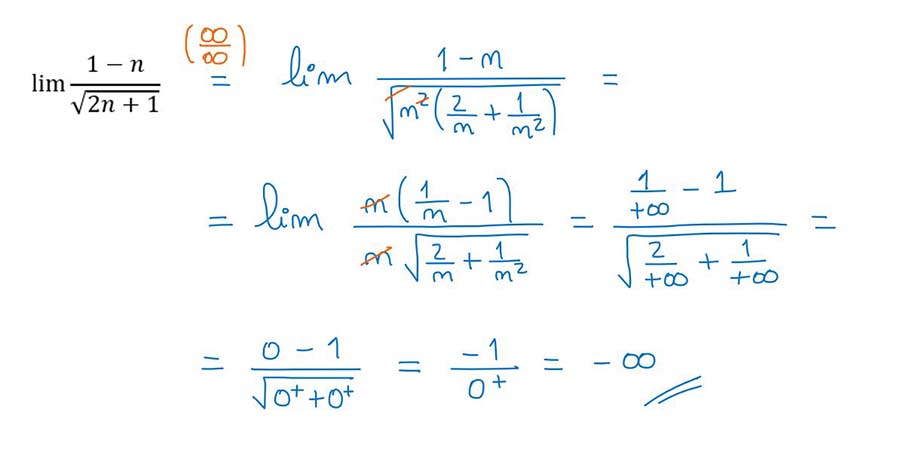 lim (1 − n)/√(2n + 1) (∞/∞) = lim (1 − n)/√(n²(2/n + 1/n²)) =
= lim n(1/n − 1)/(n√(2/n + 1/n²)) = (1/+∞ − 1)/√(2/+∞ + 1/+∞) =
= (0 − 1)/√(0⁺ + 0⁺) = −1/0⁺ = −∞